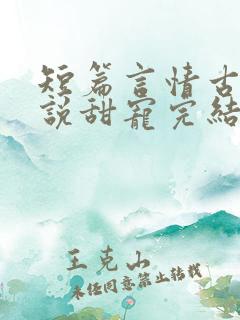 短篇言情古
說甜寵完結
王克山
未經同意禁止轉載